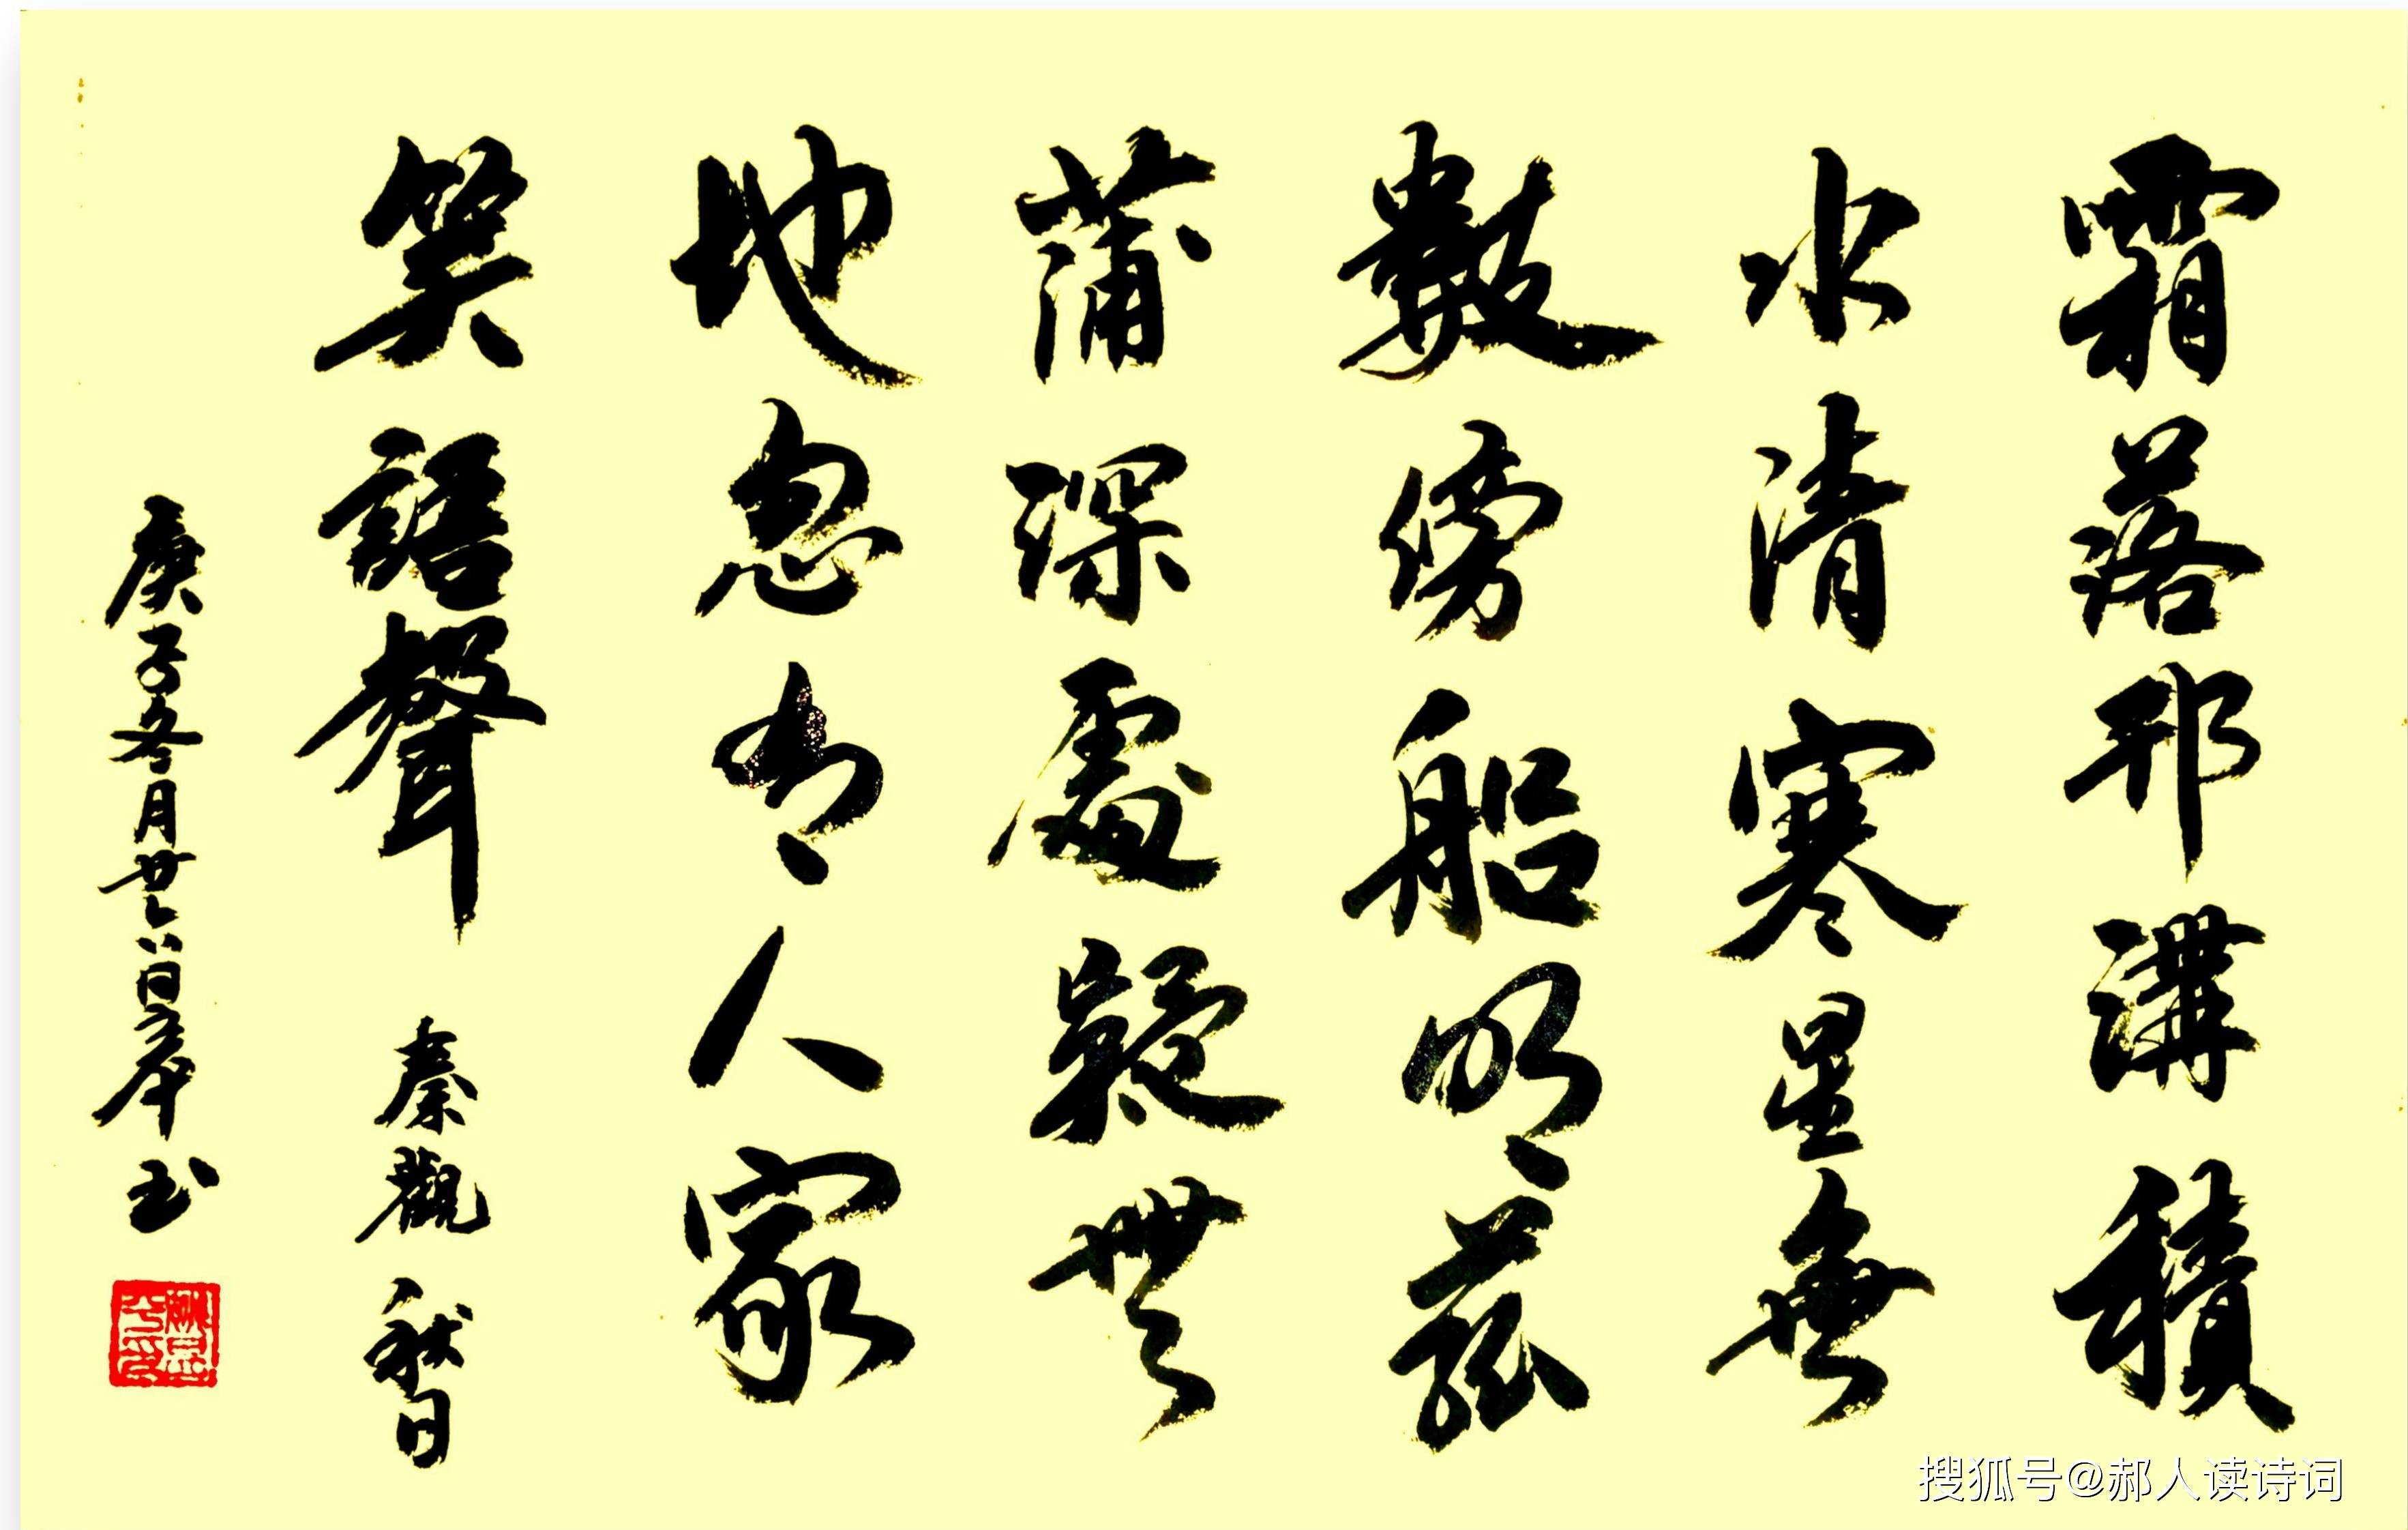 霜落邗溝積
水清寒星無
數傍船明菰
蒲深處疑無
地忽有人家
笑語聲 秦觀 秋日
庚子冬月廿六日 书
搜狐号@郝人读诗词